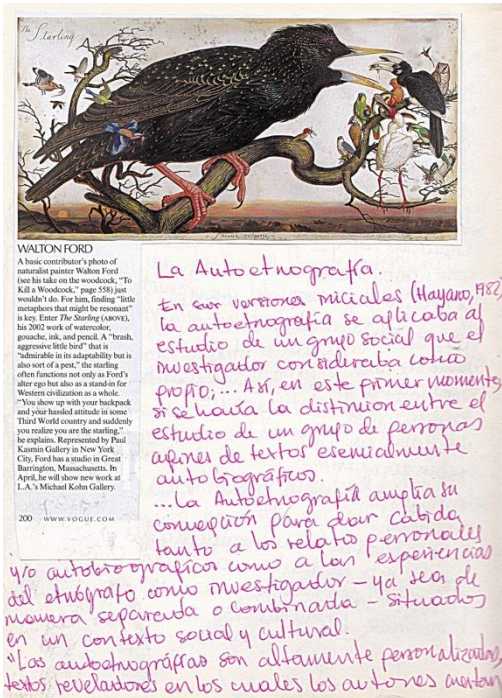 The Starling
Sturnus vulgaris,
WALTON FORD
A basic contributor's photo of
naturalist painter Walton Ford
(see his take on the woodcock, "To
Kill a Woodcock," page 558) just
wouldn't do. For him, finding "little
metaphors that might be resonant"
is key. Enter The Starling (ABOVE),
his 2002 work of watercolor,
gouache, ink, and pencil. A "brash,
aggressive little bird" that is
"admirable in its adaptability but is
also sort of a pest," the starling
often functions not only as Ford's
alter ego but also as a stand-in for
Western civilization as a whole.
"You show up with your backpack
and your hassled attitude in some
Third World country and suddenly
you realize you are the starling,"
he explains. Represented by Paul
Kasmin Gallery in New York
City, Ford has a studio in Great
Barrington, Massachusetts. In
April, he will show new work at
L.A.'s Michael Kohn Gallery.
200 WWW.VOGUE.COM
La Autoetnografía.
En sus versiones iniciales (Hayano, 1982)
la autoetnografía se aplicaba al
estudio de un grupo social que el
investigador consideraba como
propio;... Así, en este primer momento,
si se hacía la distinción entre el
estudio de un grupo de personas
afines de textos esencialmente
autobiográficos.
...La Autoetnografía amplia su
concepción para dar cabida
tanto a los relatos personales
y/o autobiográficos como a las experiencias
del etnógrafo como investigador – ya sea de
manera separada o combinada – situados
en un contexto social y cultural.
"Las autoetnográfias son altamente personalizadas,
textos reveladores en los cuales los autores cuentan